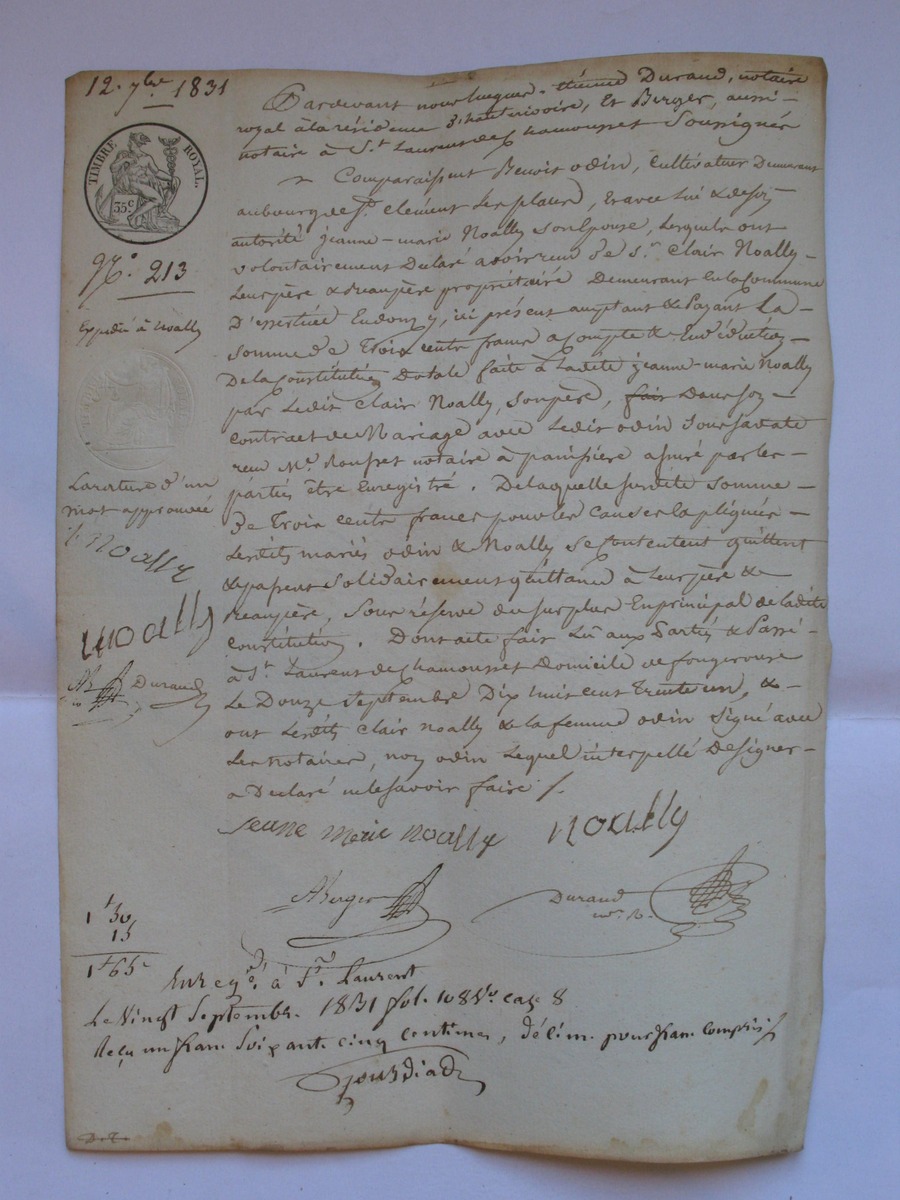 12. 7bre 1831
TIMBRE ROYAL.
35c
No. 213
Expédié à Noally
La rature d'un
mot approuvée
Noally
Noally
AB
Durand
Pardevant nous hugues étienne Durand, notaire
royal à la résidence , Et Berger, aussi
notaire à St. Laurent de Chamousset Soussignés
Comparaissent Benoit odin, Cultivateur Demeurant
au bourg de St. Clément Les places, Et avec Lui & de son
autorité jeanne-marie Noally Son Epouse, Lesquels ont
volontairement Déclaré avoir reçu de Sr. Clair Noally
Leur père & Beaupère propriétaire Demeurant En la Commune
D'essertines En donzy, ici présent acceptant & Payant La
Somme de Trois cents francs a Compte & En déduction
De la Constitution Dotale faite à Ladite jeanne-marie Noally
par Ledit Clair Noally, Son père, fait Dans Son
Contract de Mariage avec Ledit odin Jour Sa date
reçu Me. Rousset notaire à panissière assuré par les
parties être Enregistré. De laquelle Susdite Somme
De Trois cents francs pour les Causes La
Lesdits mariés odin & Noally Se Contentent quittent
& passent Solidairement quittance à Leur père &
Beaupère, Sous réserve du Surplus En principal de ladite
Constitution. Dont acte fait Lu aux Parties & Passé
à St. Laurent de Chamousset Domicile de fougerouse
Le Douze Septembre Dix huit cent Trente un, &
ont Lesdits Clair Noally & la femme odin Signé avec
Les Notaires, non odin Lequel interpellé De Signer
a Déclaré ne le Savoir faire
Jeane Marie Noally Noally
ABerger
Durand
no. R.
1f 50
15
1f 65c
Enregé. à St. Laurent
Le Vingt Septembre 1831 fol. 108 Vo case 8
Reçu un franc Soixante cinq centimes, décime pour franc compris